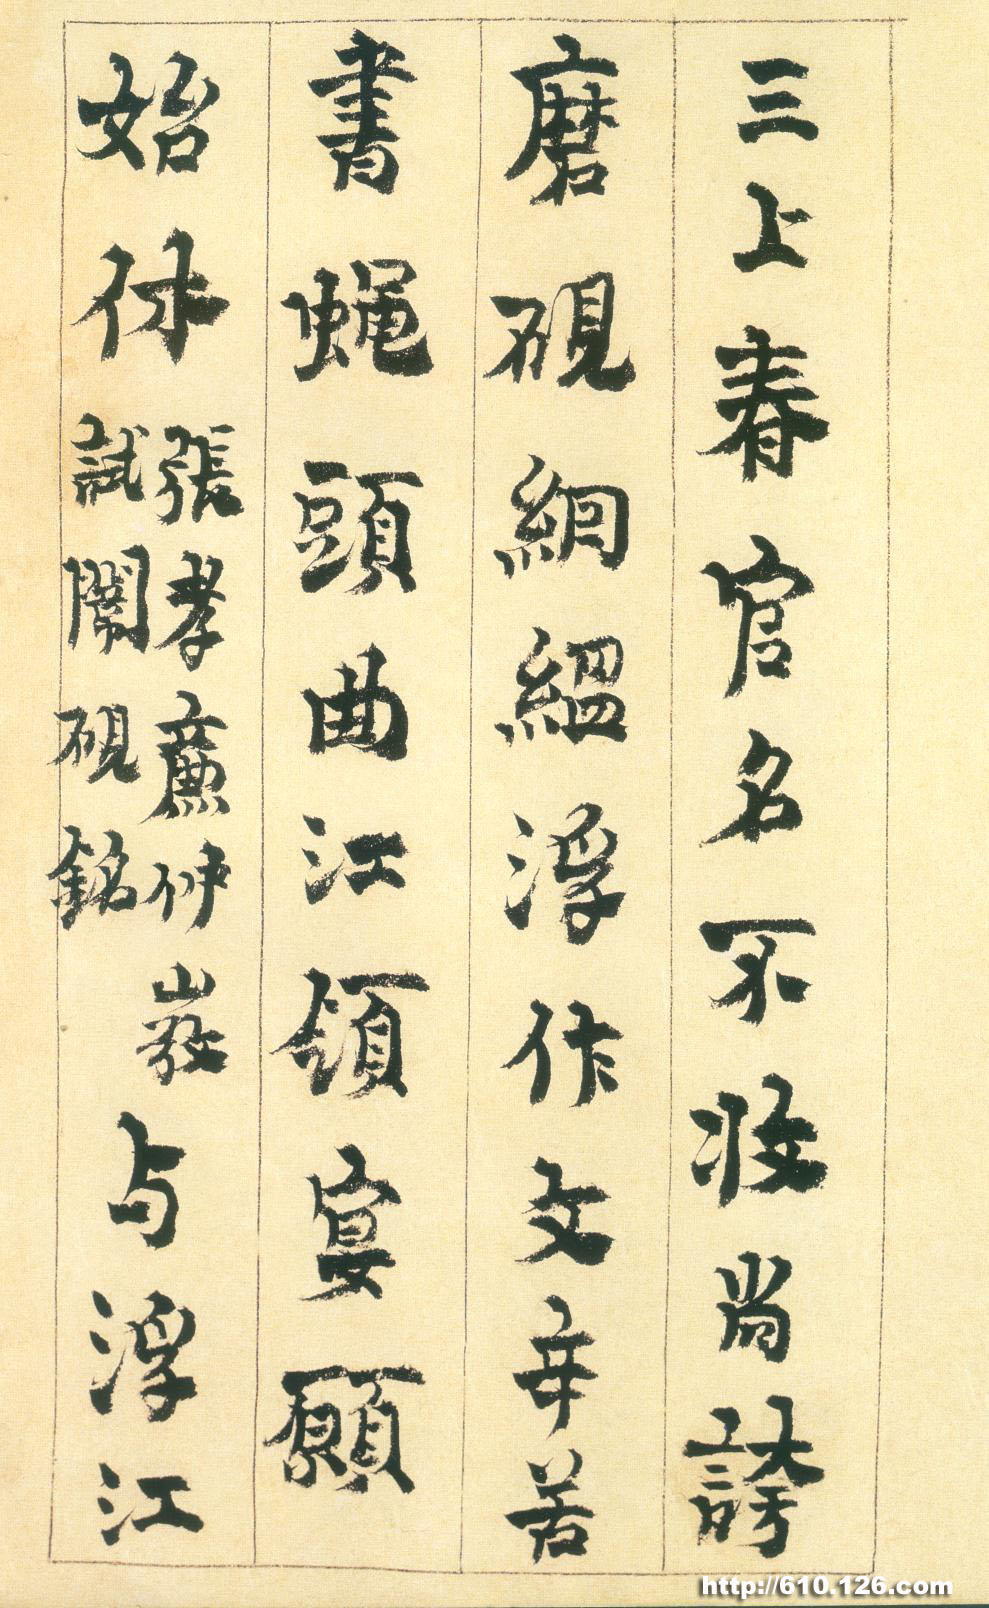 三上春官名不收尚誇
磨硯絪縕浮作文辛苦
書蝇頭曲江領宴願
始休
張孝廉仲嚴
試闈硯銘
与浮江
http://610.126.com